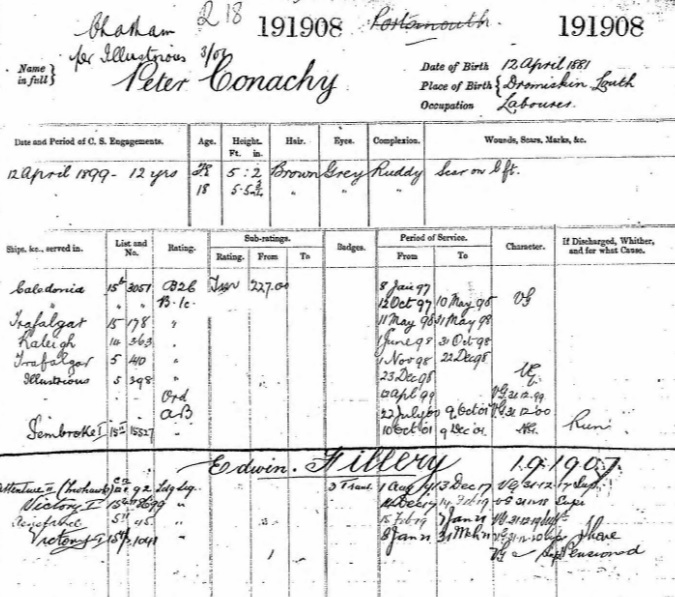 Chatham 218 191908 Portsmouth 191908
per Illustrious 3/01
Name in full } Peter Conachy
Date of Birth 12 April 1881
Place of Birth { Dromiskin Louth
Occupation Labourer
Date and Period of C. S. Engagements. Age. Height. Hair. Eyes. Complexion. Wounds, Scars, Marks, &c.
Ft. in.
12 April 1899 - 12 yrs 5:2 Brown Grey Ruddy Scar on
18 5.5 " " "
Ships, &c., served in. List and No. Rating. Sub-ratings. Badges. Period of Service. Character. If Discharged, Whither, and for what Cause.
Rating. From To From To
Caledonia 15 3051 B2C 8 Jan 97
" " B.1c. 12 Oct 97 10 May 98 VG
Trafalgar 15 178 " 11 May 98 31 May 98
Raleigh 14 363 " 1 June 98 31 Oct 98
Trafalgar 5 410 " 1 Nov 98 22 Dec 98
Illustrious 5 398 " 23 Dec 98 VG
Ord 12 Apl 99 VG 31.12.99
AB 22 July 00 9 Oct 01 VG 31.12.00
Pembroke I 15 15527 " 10 Oct 01 9 Dec 01 Run
Edwin Fillery 191907
(Mohawk) 92 Ldg Sig. 1 Aug 13 Dec 17 VG 31-12-17
Victory I " 14 Feb 19 VG 31.12.18
45 " 15 Feb 19 7 Jan 21 VG 31.12.19
Victory I 1041 " 8 Jan 21 Shore
VG Pensioned